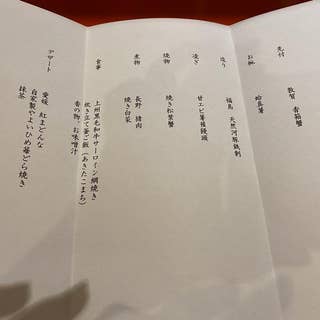 先付
敦賀 香箱蟹
お椀
蛤真薯
造り
福島 天然河豚鉄刺
凌ぎ
甘エビ箸休饅頭
焼物
焼き松葉蟹
煮物
長野 猪肉
焼き白菜
食事
上州黒毛和牛サーロイン網焼き
炊き立て釜ご飯(あきたこまち)
香の物、お味噌汁
デザート
愛媛 紅まどんな
自家製やよいひめ苺どら焼き
抹茶